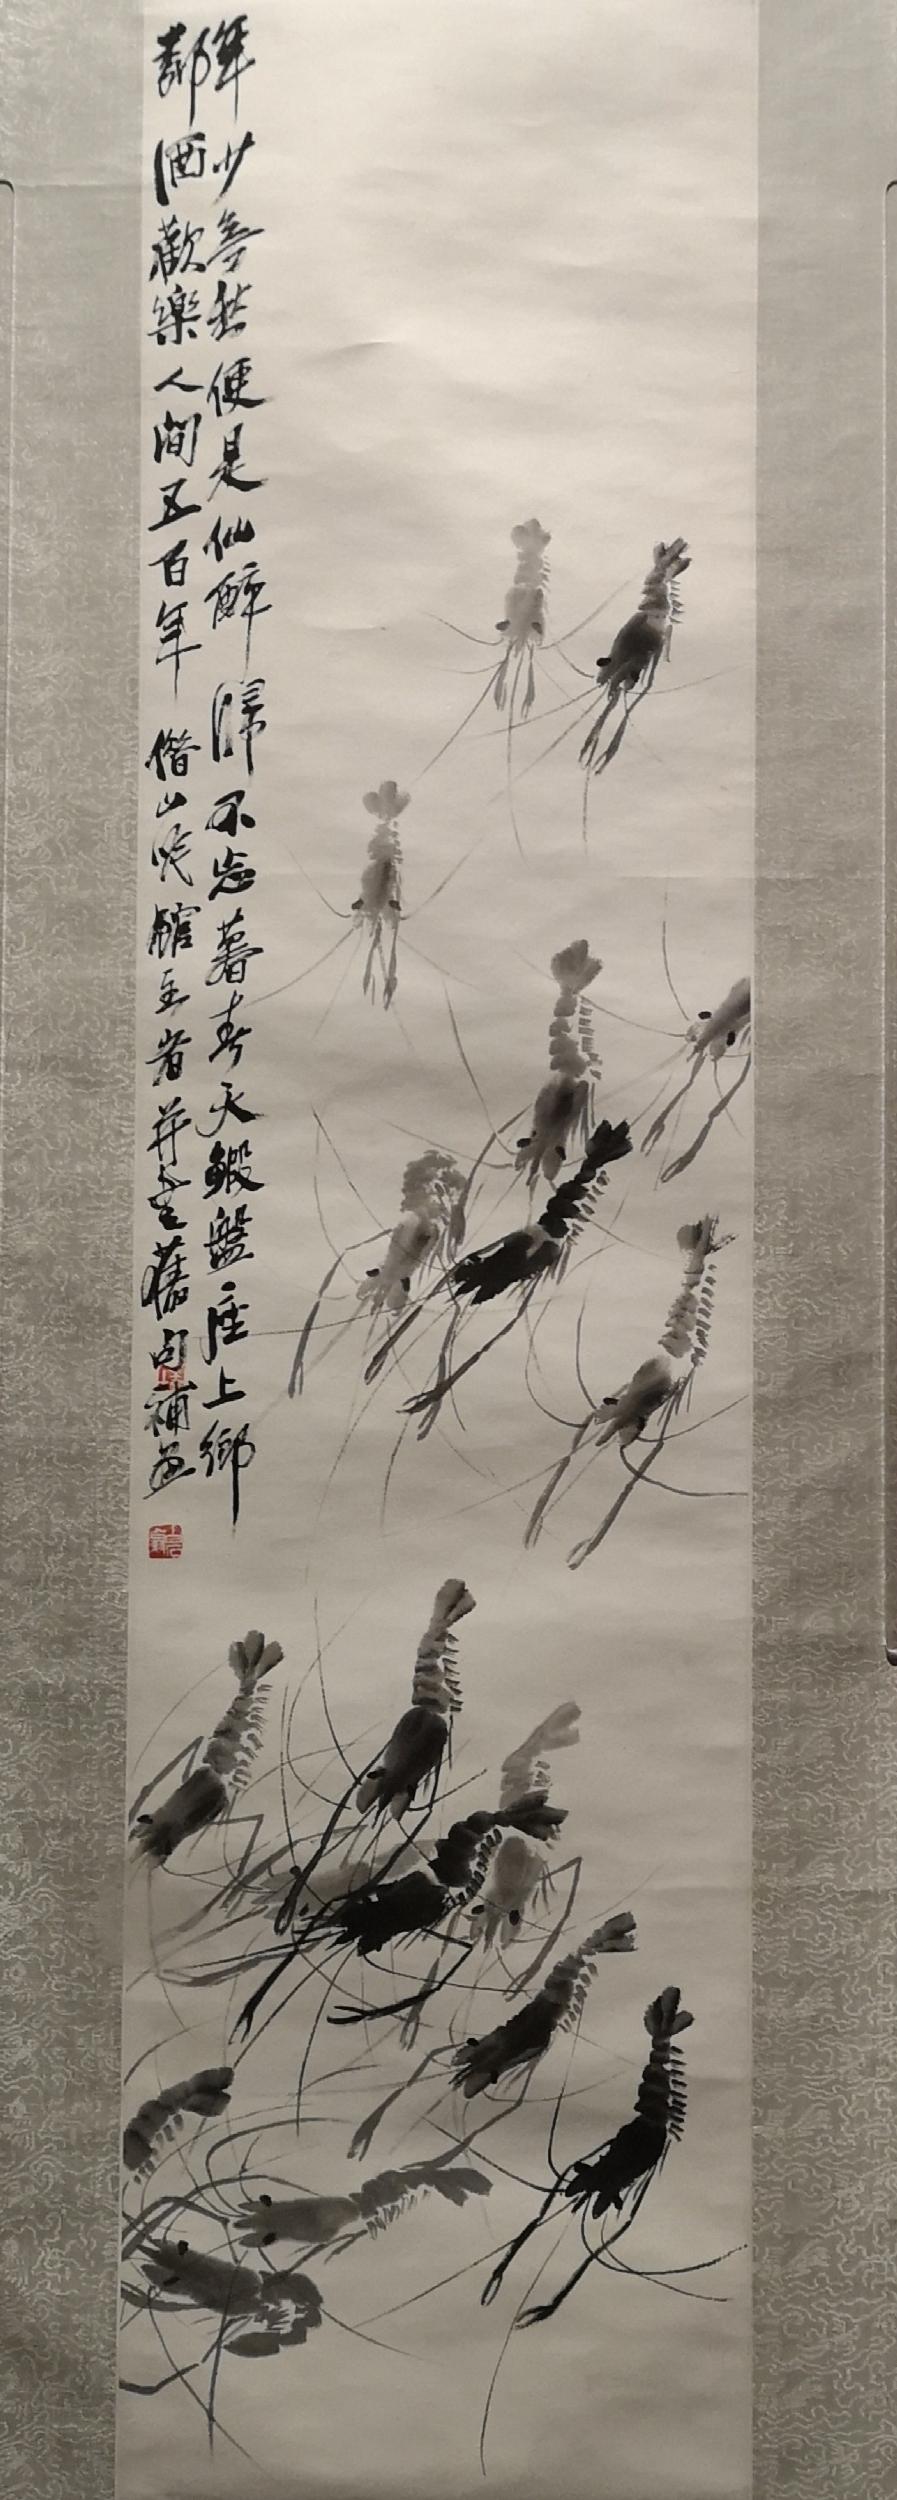 年少無愁便是仙醉歸不忘暮春天鰕盤座上鄉
鄰酒歡樂人間五百年 借山吟館主者并書舊句補畫